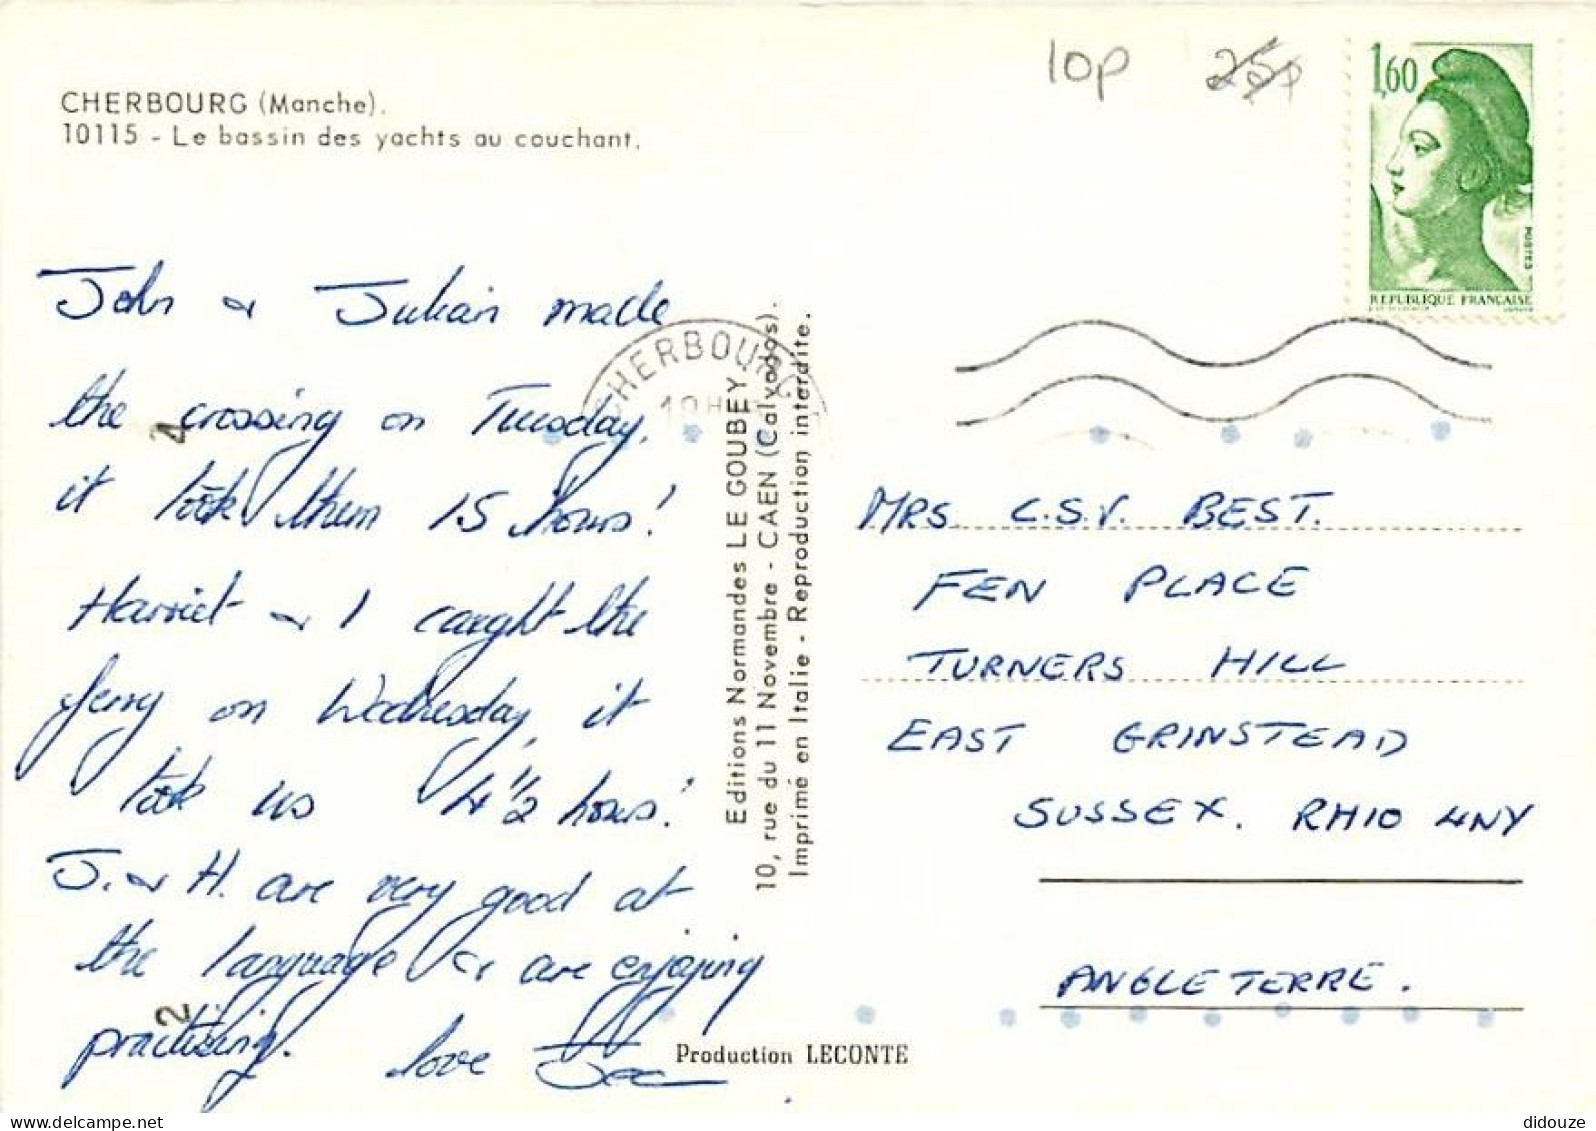 10p 25p
1,60
POSTES
REPUBLIQUE FRANÇAISE
CHERBOURG (Manche).
10115 - Le bassin des yachts au couchant.
John & Julian made
the crossing on Tuesday,
it took them 15 hours!
Harriet & I caught the
ferry on Wednesday, it
took us 4 1/2 hours!
J. & H. are very good at
the language & are enjoying
practising. love
4
2
CHERBOURG
19H
Editions Normandes LE GOUBEY
10, rue du 11 Novembre - CAEN (Calvados).
Imprimé en Italie - Reproduction interdite.
MRS C.S.V. BEST.
FEN PLACE
TURNERS HILL
EAST GRINSTEAD
SUSSEX. RH10 4NY
ANGLETERRE.
Production LECONTE
didouze